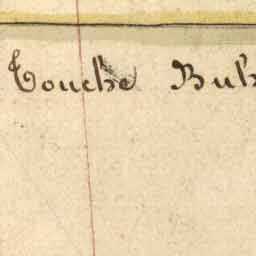 Touche Buh